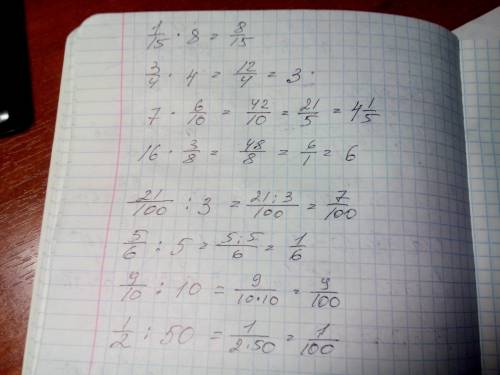 1/15 · 8 = 8/15
3/4 · 4 = 12/4 = 3 ·
7 · 6/10 = 42/10 = 21/5 = 4 1/5
16 · 3/8 = 48/8 = 6/1 = 6
21/100 : 3 = 21:3/100 = 7/100
5/6 : 5 = 5:5/6 = 1/6
9/10 : 10 = 9/10·10 = 9/100
1/2 : 50 = 1/2·50 = 1/100